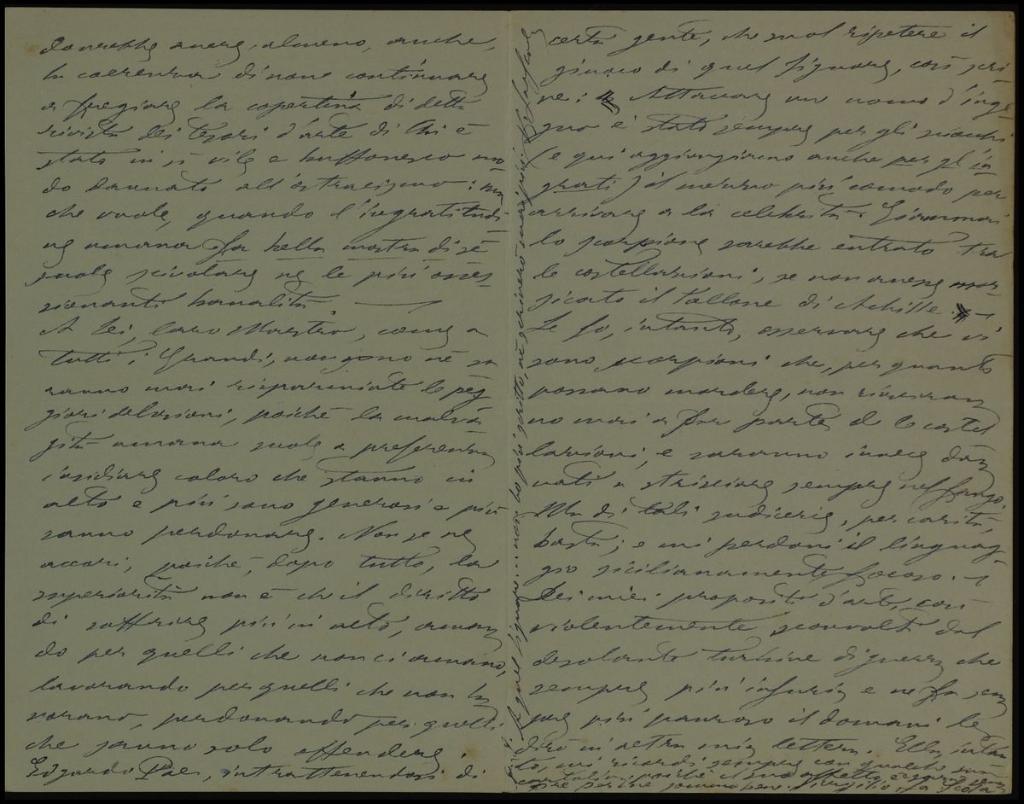 dovrebbe avere, almeno, anche,
la coerenza di non continuare
a fregiare la copertina di detta
rivista dei tesori d'arte di chi è
stato in sì vile e buffonesco mo
do dannato all'ostracismo: ma
che vuole, quando l'ingratitudi
ne umana fa bella mostra di sè
suole scivolare ne le più
sionanti banalità.
A Lei, caro Maestro, come a
tutti i Grandi, non sono nè sa
ranno mai risparmiate le peg
giori delusioni, poichè la malva
gità umana suole a preferenza
insidiare coloro che stanno in
alto e più sono generosi e più
sanno perdonare. Non se ne
accori, poichè, dopo tutto, la
superiorità non è che il diritto
di soffrire più in alto, aman
do per quelli che non ci amano,
lavorando per quelli che non la
vorano, perdonando per quelli
che sanno solo offendere.
Edgardo Poe, intrattenendosi di
certa gente, che suol ripetere il
giuoco di quel signore, così scri
ve: Attaccare un uomo d'inge
gno è stato sempre per gli sciocchi
(e qui aggiungiamo anche per gl'in
grati) il mezzo più comodo per
arrivare a la celebrità. Giammai
lo scorpione sarebbe entrato tra
le costellazioni, se non avesse mor
sicato il tallone di Achille.
Le fo, intanto, osservare che vi
sono scorpioni che, per quanto
possano mordere, non riusciran
no mai a far parte de le costel
lazioni, e saranno invece dan
nati a strisciare sempre nel fango.
Ma di tali sudicerie, per carità,
basta; e mi perdoni il linguag
gio sicilianamente focoso.
Dei miei propositi d'arte, così
violentemente sconvolti dal
desolante turbine di guerra che
sempre più infuria e ne fa sem
pre più pauroso il domani le
dirò in altra mia lettera. Ella intan
to, mi ricordi sempre con qualche
poichè il suo affetto
A quel signore... non ho più scritto, nè scriverò mai più!